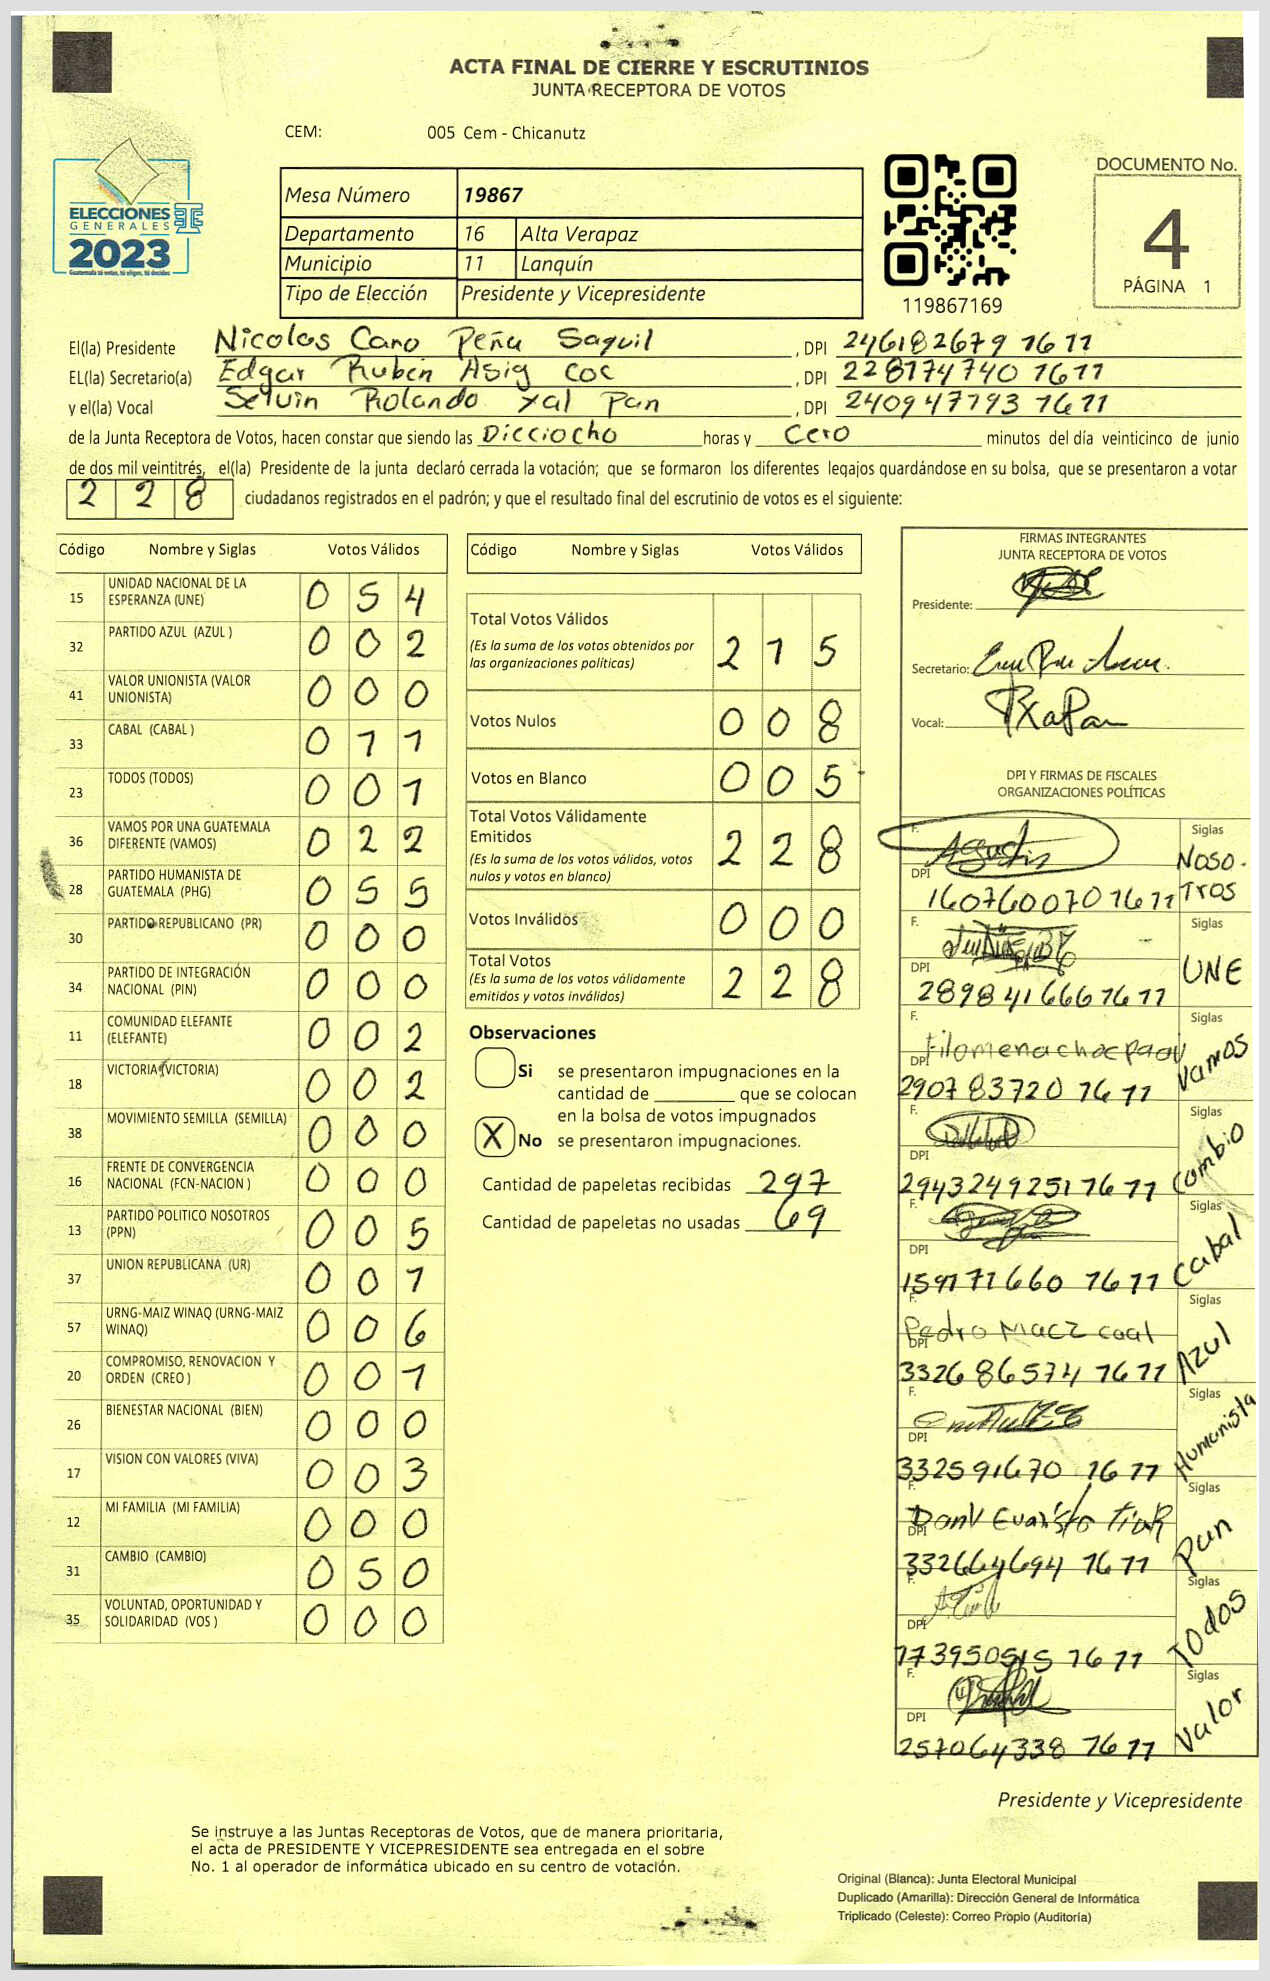 ACTA FINAL DE CIERRE Y ESCRUTINIOS
JUNTA RECEPTORA DE VOTOS
CEM: 005 Cem - Chicanutz
ELECCIONES
GENERALES
2023
Guatemala tú votas, tú eliges, tú decides
Mesa Número 19867
Departamento 16 Alta Verapaz
Municipio 11 Lanquín
Tipo de Elección Presidente y Vicepresidente
119867169
DOCUMENTO No.
4
PÁGINA 1
El(la) Presidente Nicolas Cano Peña Saquil , DPI 246182679 1611
EL(la) Secretario(a) Edgar Ruben Asig Coc , DPI 228174740 1611
y el(la) Vocal Selvin Rolando Xal Pan , DPI 240947793 1611
de la Junta Receptora de Votos, hacen constar que siendo las Dicciocho horas y Cero minutos del día veinticinco de junio
de dos mil veintitrés, el(la) Presidente de la junta declaró cerrada la votación; que se formaron los diferentes legajos guardándose en su bolsa, que se presentaron a votar
2 2 8 ciudadanos registrados en el padrón; y que el resultado final del escrutinio de votos es el siguiente:
Código Nombre y Siglas Votos Válidos
15 UNIDAD NACIONAL DE LA ESPERANZA (UNE) 0 5 4
32 PARTIDO AZUL (AZUL ) 0 0 2
41 VALOR UNIONISTA (VALOR UNIONISTA) 0 0 0
33 CABAL (CABAL ) 0 1 1
23 TODOS (TODOS) 0 0 1
36 VAMOS POR UNA GUATEMALA DIFERENTE (VAMOS) 0 2 2
28 PARTIDO HUMANISTA DE GUATEMALA (PHG) 0 5 5
30 PARTIDO REPUBLICANO (PR) 0 0 0
34 PARTIDO DE INTEGRACIÓN NACIONAL (PIN) 0 0 0
11 COMUNIDAD ELEFANTE (ELEFANTE) 0 0 2
18 VICTORIA (VICTORIA) 0 0 2
38 MOVIMIENTO SEMILLA (SEMILLA) 0 0 0
16 FRENTE DE CONVERGENCIA NACIONAL (FCN-NACION ) 0 0 0
13 PARTIDO POLITICO NOSOTROS (PPN) 0 0 5
37 UNION REPUBLICANA (UR) 0 0 1
57 URNG-MAIZ WINAQ (URNG-MAIZ WINAQ) 0 0 6
20 COMPROMISO, RENOVACION Y ORDEN (CREO ) 0 0 1
26 BIENESTAR NACIONAL (BIEN) 0 0 0
17 VISION CON VALORES (VIVA) 0 0 3
12 MI FAMILIA (MI FAMILIA) 0 0 0
31 CAMBIO (CAMBIO) 0 5 0
35 VOLUNTAD, OPORTUNIDAD Y SOLIDARIDAD (VOS ) 0 0 0
Código Nombre y Siglas Votos Válidos
Total Votos Válidos 2 1 5
(Es la suma de los votos obtenidos por
las organizaciones políticas)
Votos Nulos 0 0 8
Votos en Blanco 0 0 5
Total Votos Válidamente
Emitidos 2 2 8
(Es la suma de los votos válidos, votos
nulos y votos en blanco)
Votos Inválidos 0 0 0
Total Votos 2 2 8
(Es la suma de los votos válidamente
emitidos y votos inválidos)
Observaciones
Si se presentaron impugnaciones en la
cantidad de que se colocan
en la bolsa de votos impugnados
X No se presentaron impugnaciones.
Cantidad de papeletas recibidas 297
Cantidad de papeletas no usadas 69
FIRMAS INTEGRANTES
JUNTA RECEPTORA DE VOTOS
Presidente:
Secretario:
Vocal:
DPI Y FIRMAS DE FISCALES
ORGANIZACIONES POLÍTICAS
F. Agustin Siglas
DPI 160760070 1611 Noso-
Tros
F. Siglas
DPI 289841666 1611 UNE
F. Filomena choc paau Siglas
DPI 290783720 1611 Vamos
F. Siglas
DPI 294324925 1611 Cambio
F. Siglas
DPI 159171660 1611 Cabal
F. Pedro Macz caal Siglas
DPI 332686574 1611 Azul
F. Siglas
DPI 332591670 1611 Humanista
F. Siglas
DPI 332664694 1611 Pun
F. Siglas
DPI 173950515 1611 Todos
F. Siglas
DPI 257064338 1611 Valor
Presidente y Vicepresidente
Se instruye a las Juntas Receptoras de Votos, que de manera prioritaria,
el acta de PRESIDENTE Y VICEPRESIDENTE sea entregada en el sobre
No. 1 al operador de informática ubicado en su centro de votación.
Original (Blanca): Junta Electoral Municipal
Duplicado (Amarilla): Dirección General de Informática
Triplicado (Celeste): Correo Propio (Auditoría)